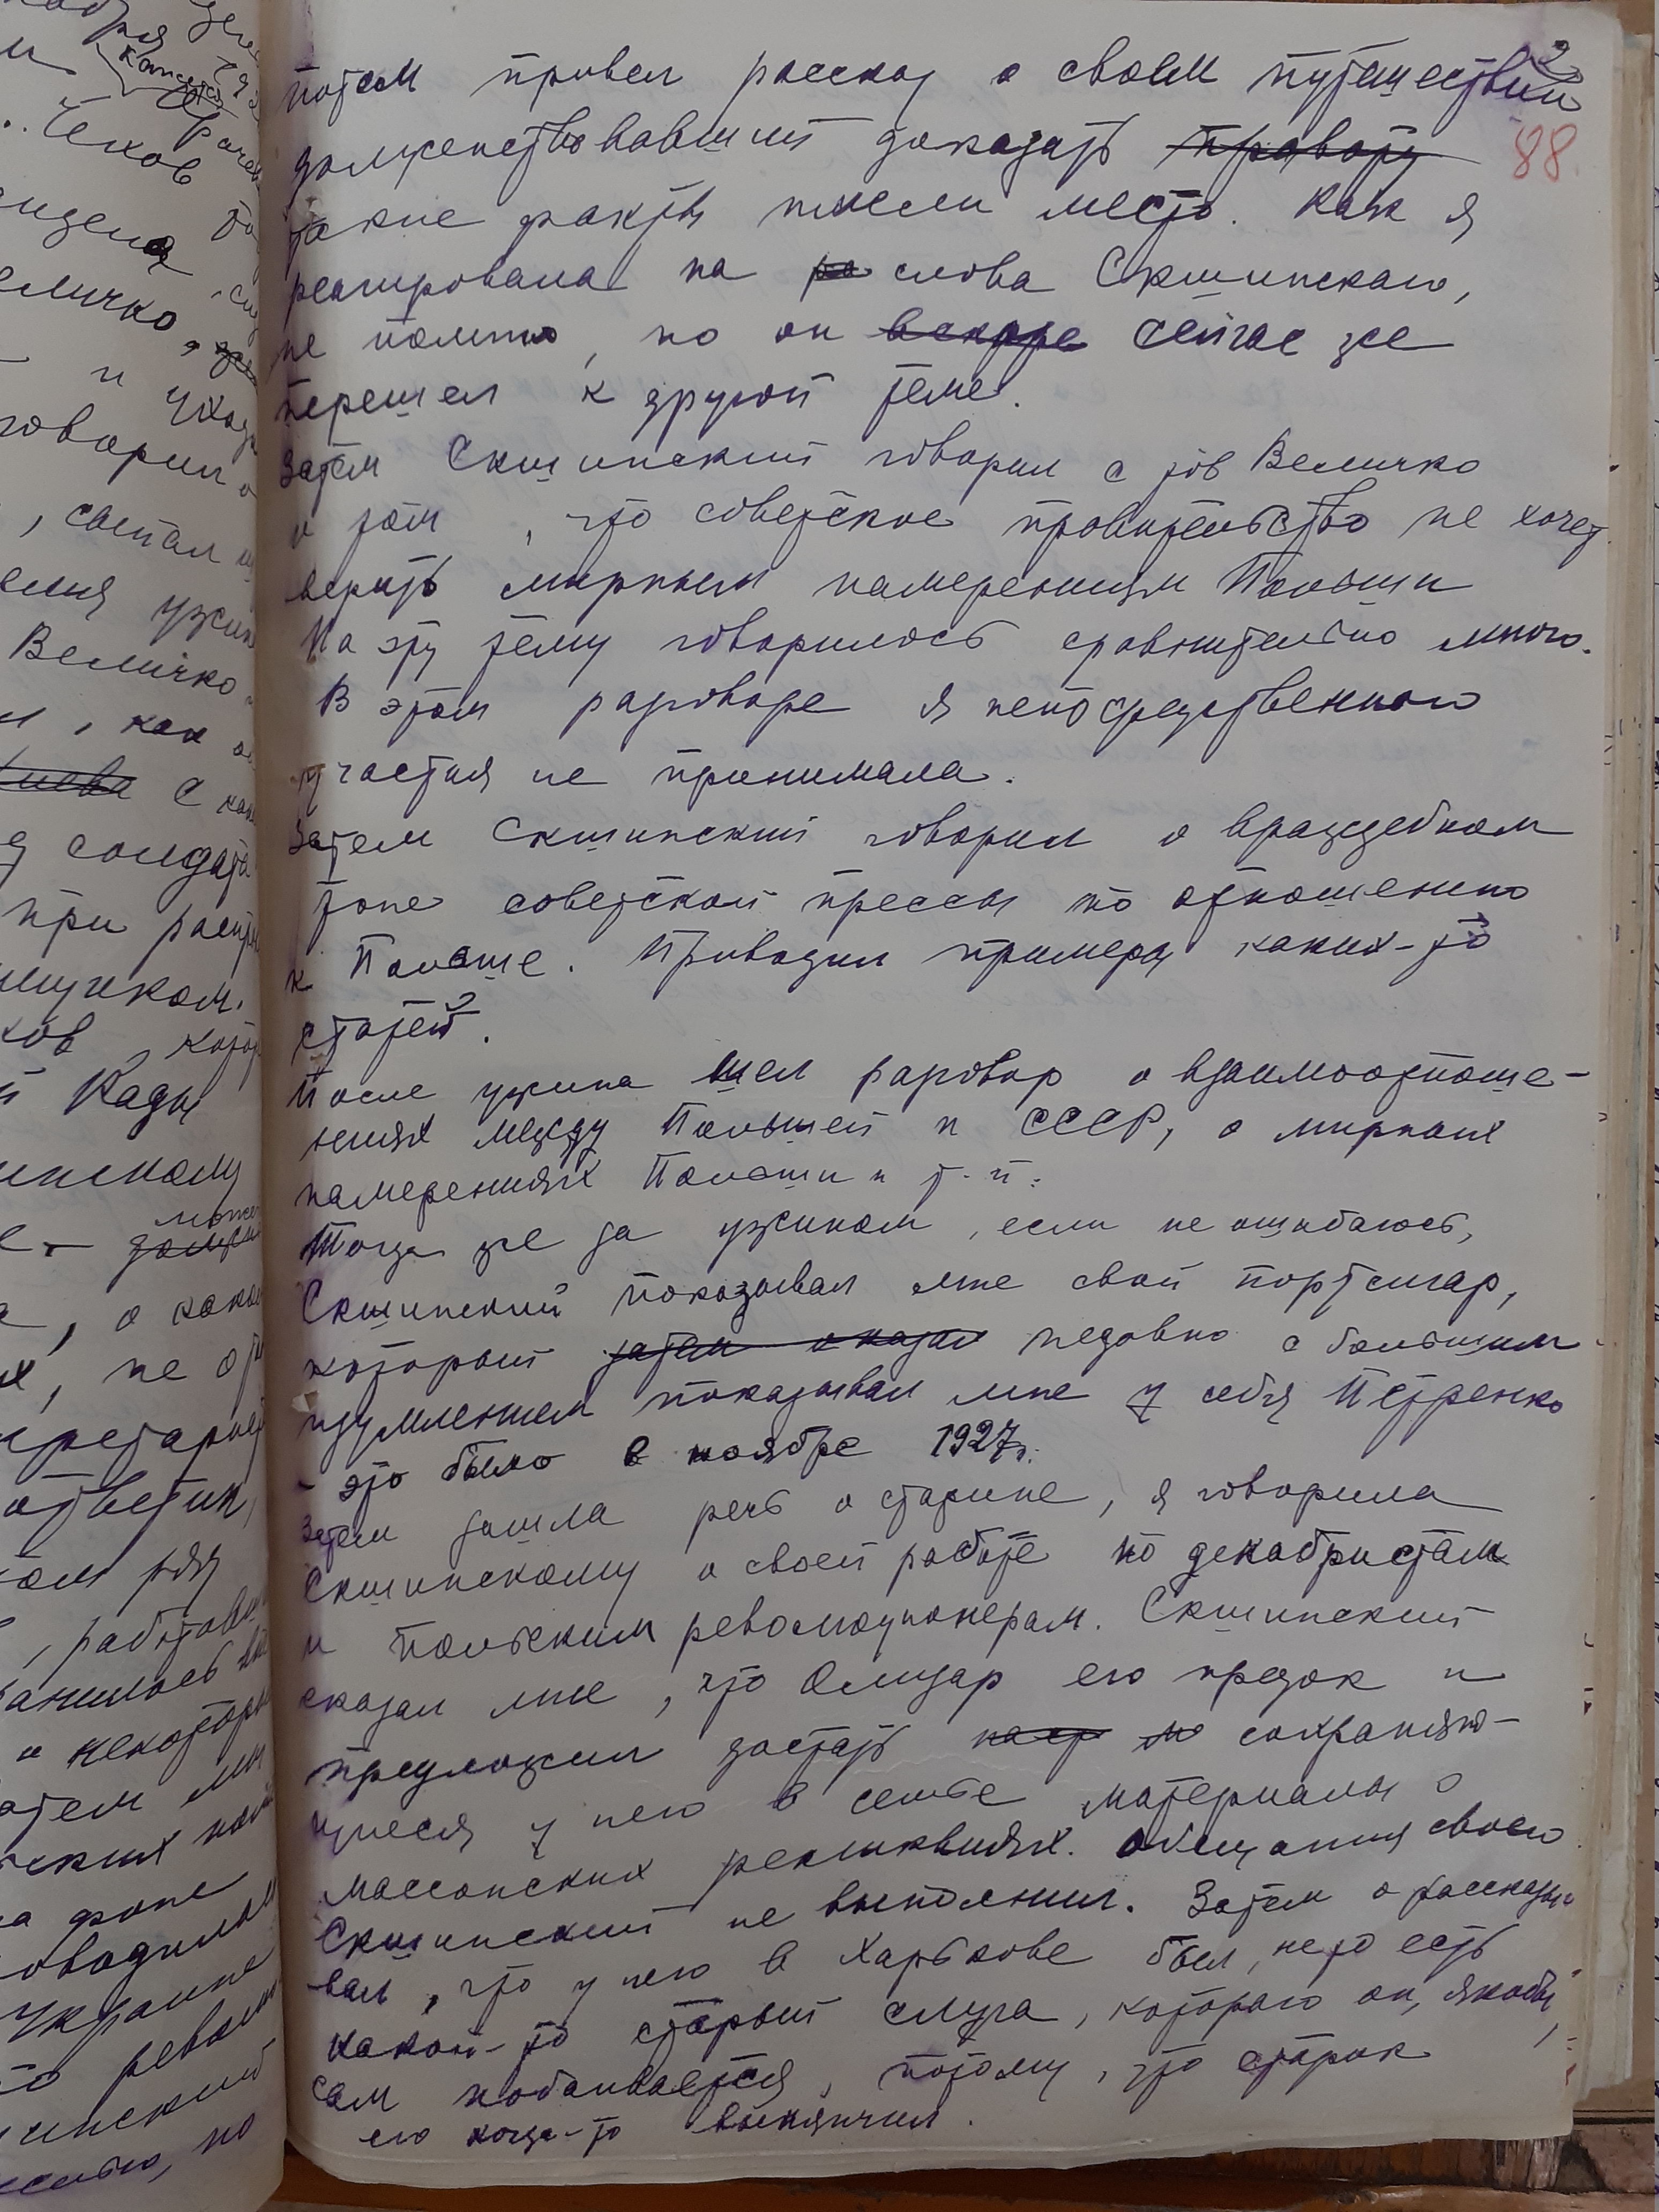 2
88.
потом привел рассказ о своем путешествии
долженствовавший доказать правоту
такие факты имели место. Как я
реагировала на ра слова Скшинского,
не помню, но он вскоре сейчас же
перешел к другой теме.
Затем Скшинский говорил с тов Величко
о том, что советское правительство не хочет
верить мирным намерениям Польши
На эту тему говорилось сравнительно много.
В этом разговоре я непосредственного
участия не принимала.
Затем Скшинский говорил о враждебном
тоне советской прессы по отношению
к Польше. Приводил примеры каких-то
статей.
После ужина шел разговор о взаимоотноше-
ниях между Польшей и СССР, о мирных
намерениях Польши и т.п.
Тогда же за ужином, если не ошибаюсь,
Скшинский показывал мне свой портсигар,
который затем оказал недавно с большим
изумлением показывал мне у себя Петренко
- это было в ноябре 1927г.
Затем зашла речь о старине, я говорила
Скшинскому о своей работе по декабристам
и польским революционерам. Скшинский
сказал мне, что Олизар его предок и
предложил достать сохраняю-
щиеся у него в семье материалы о
массонских реликвиях. Обещания своего
Скшинский не выполнил. Затем о рассказы-
вал, что у него в Харькове был, не то есть
какой-то старый слуга, которого он, якобы,
сам побаивается, потому, что старик
его когда-то вынянчил.